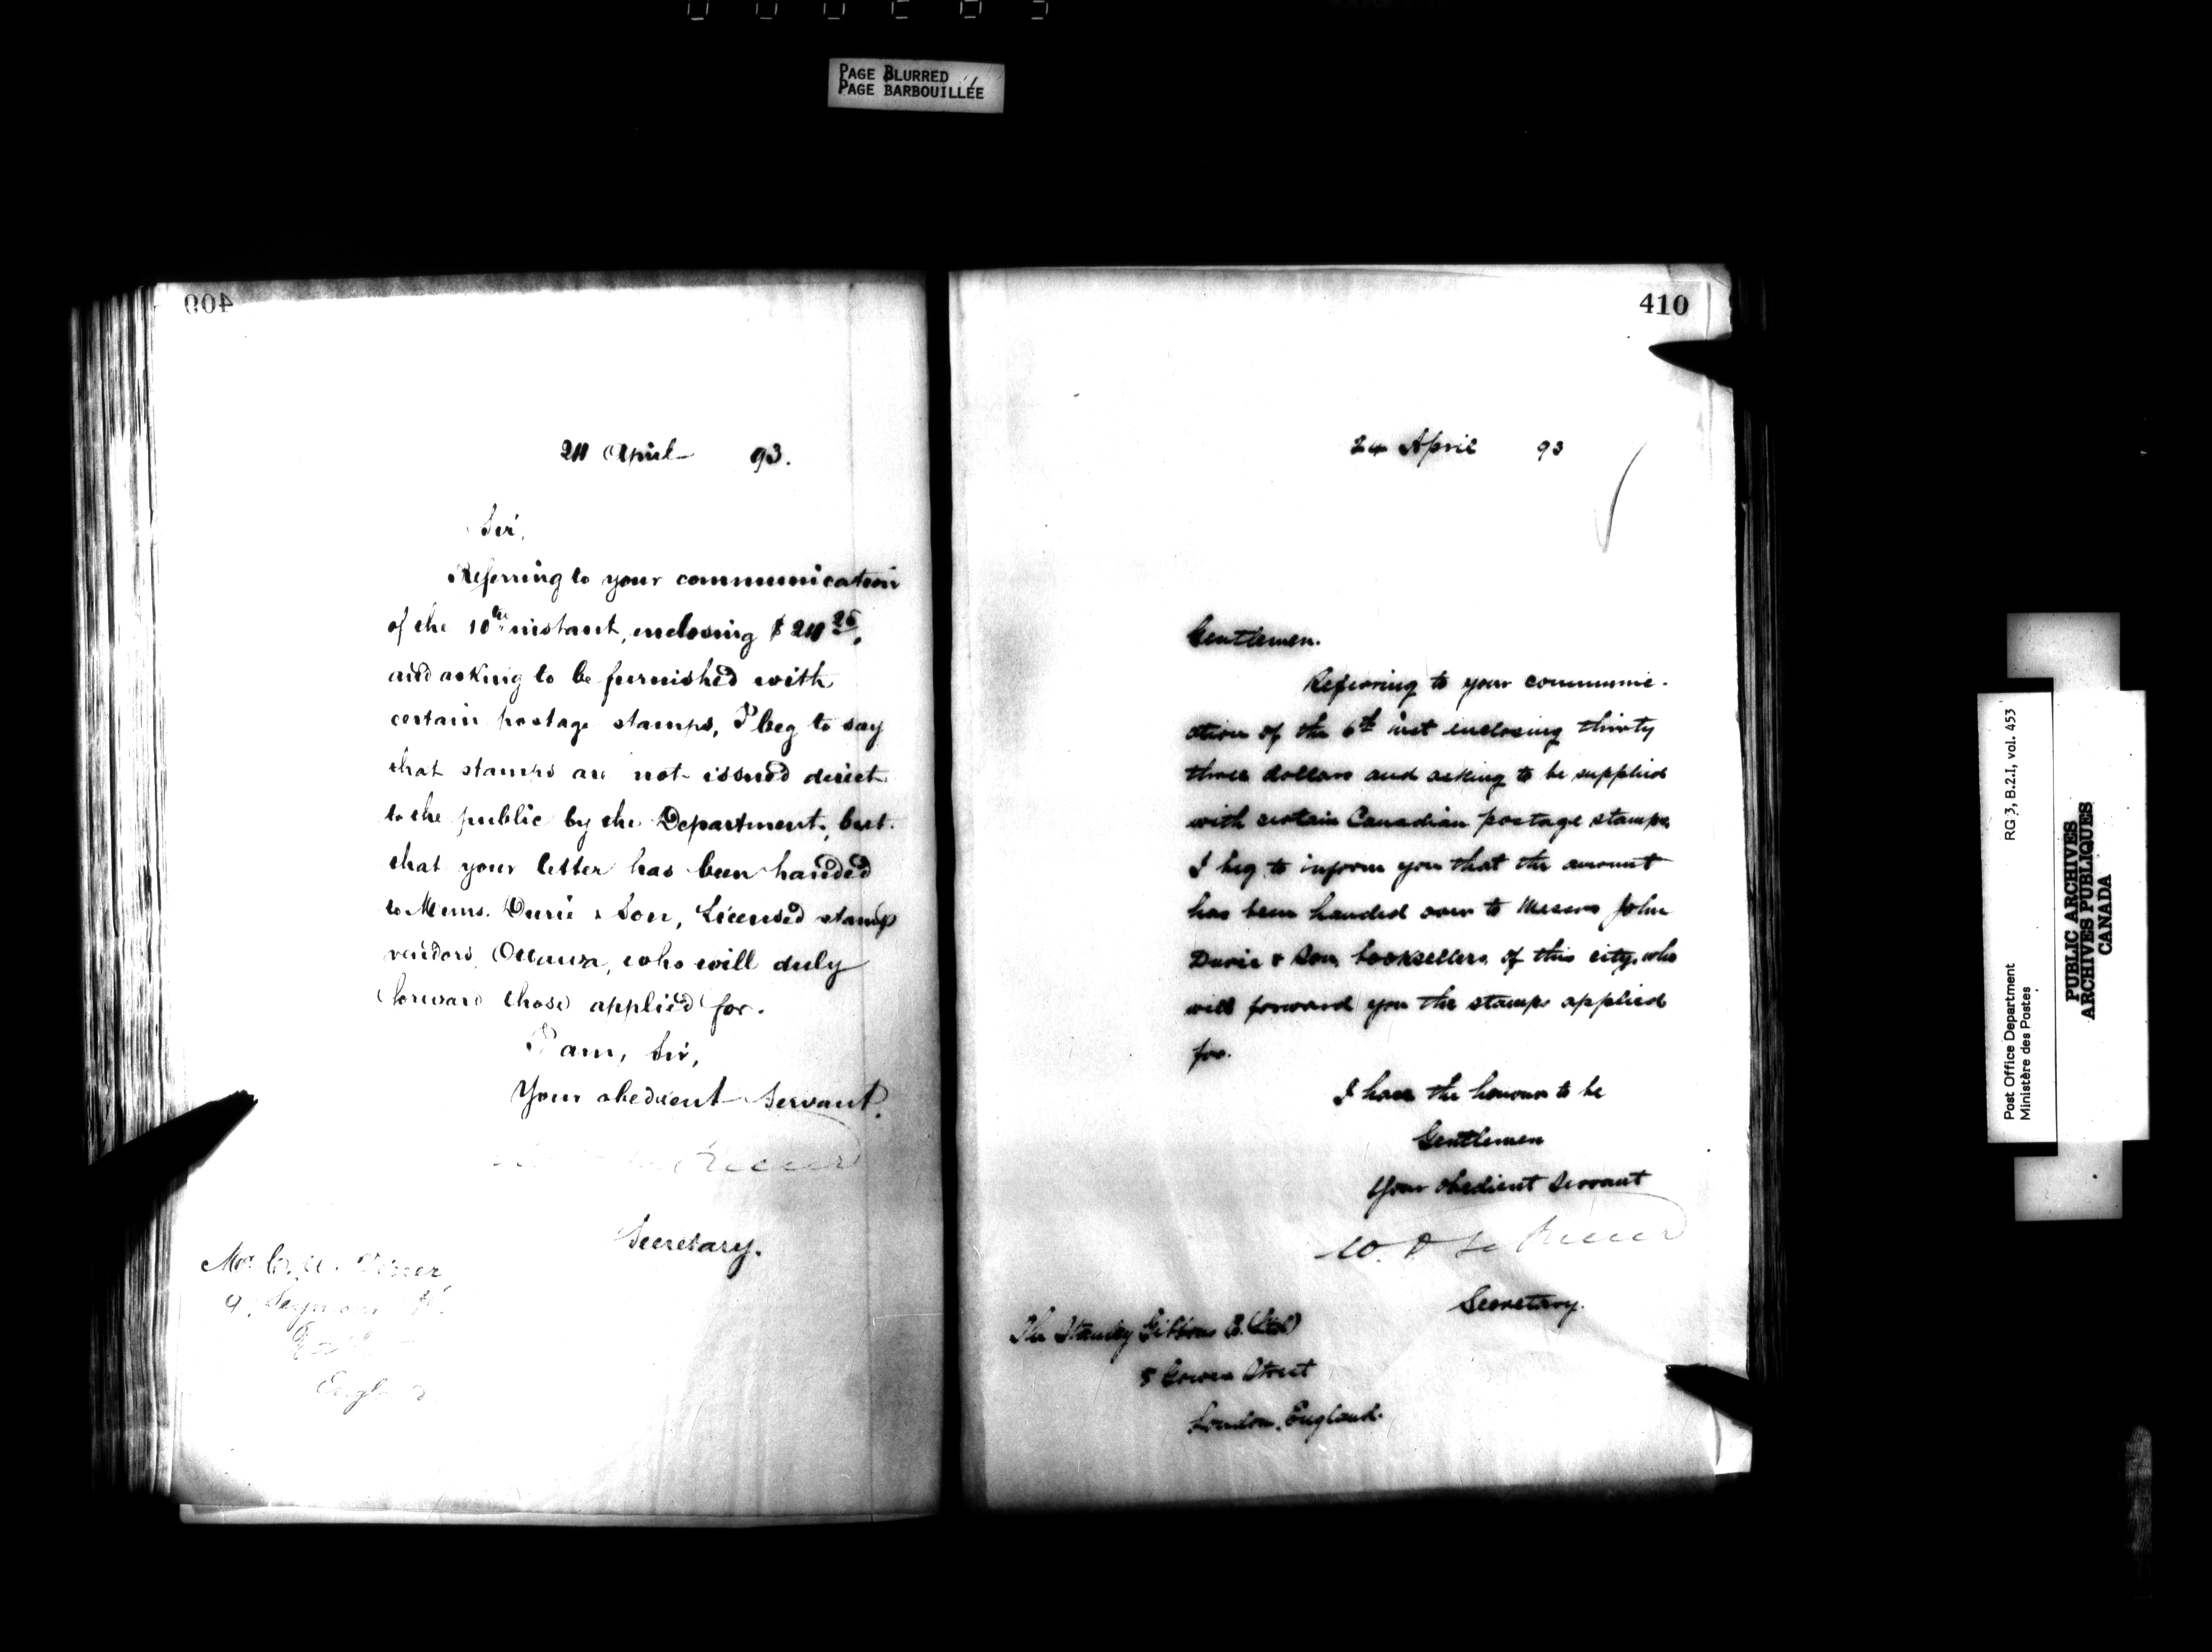 PAGE BLURRED
PAGE BARBOUILLÉE
409
24 April 93.
Sir,
Referring to your communication
of the 10th instant, enclosing $24 25,
and asking to be furnished with
certain postage stamps, I beg to say
that stamps are not issued direct
to the public by the Department, but
that your letter has been handed
to Messrs. Durie & Son, Licensed stamp
vendors, Ottawa, who will duly
forward those applied for.
I am, Sir,
Your obedient Servant.
Secretary.
9, Seymour St.
England
410
24 April 93
Gentlemen.
Referring to your communic-
ation of the 6th inst enclosing thirty
three dollars and asking to be supplied
with certain Canadian postage stamps,
I beg to inform you that the amount
has been handed over to Messrs John
Durie & Son, booksellers, of this city, who
will forward you the stamps applied
for.
I have the honour to be
Gentlemen
Your obedient Servant
W. D. Le Sueur
Secretary.
The Stanley Gibbons Co. (Ltd)
8 Gower Street
London, England.
Post Office Department
Ministère des Postes
RG 3, B.2.I, vol. 453
PUBLIC ARCHIVES
ARCHIVES PUBLIQUES
CANADA